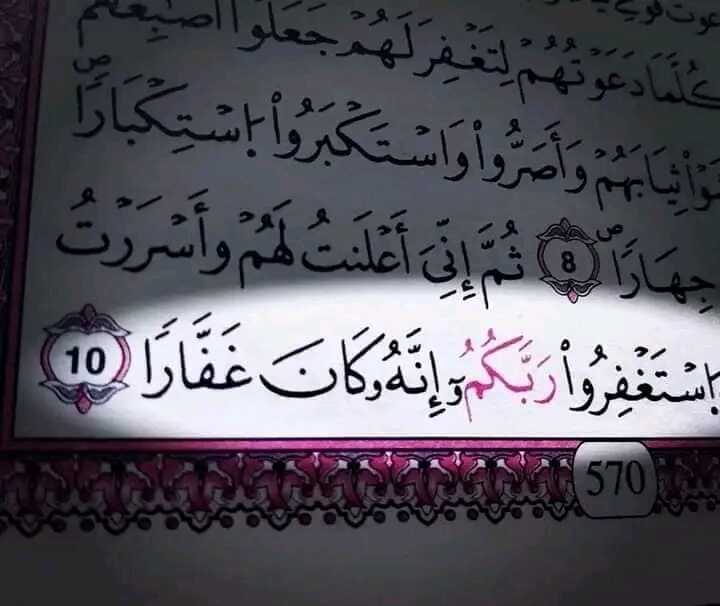 كُلَّمَا دَعَوْتُهُمْ لِتَغْفِرَ لَهُمْ جَعَلُوٓا۟ أَصَٰبِعَهُمْ
ثِيَابَهُمْ وَأَصَرُّوا۟ وَاسْتَكْبَرُوا۟ اُ۪سْتِكْبَارًا
جِهَارًا 8 ثُمَّ إِنِّيَ أَعْلَنتُ لَهُمْ وَأَسْرَرْتُ
اُ۪سْتَغْفِرُوا۟ رَبَّكُمُۥٓ إِنَّهُۥ كَانَ غَفَّارًا 10
570